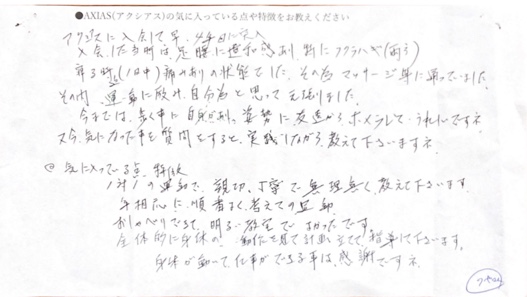 ●AXIAS(アクシアス)の気に入っている点や特徴をお教えください
アクシアスに入会して早、4年目に突入
入会した当時は、足腰に違和感あり、特にフクラハギ(両方)
寝る時も(1日中)痛みありの状態でした。その為マッサージ等に通っていました。
その内、運動に励み、自分為と思って
今までは、歩く事に自身が、姿勢に友達からホメラレて、うれしいですネ
又今、気になった事を質問をすると、実践しながら教えて下さいますネ
◎気に入っている点、特徴
1対1の運動で、親切、丁寧で無理無く、教えて下さいます。
年相応に、順番よく、考えての運動
おしゃべりもでき、明るい教室でよかったです。
全体的に身体の動作を見て計画立てて指導して下さいます。
身体が動いて仕事ができる事は、感謝ですネ